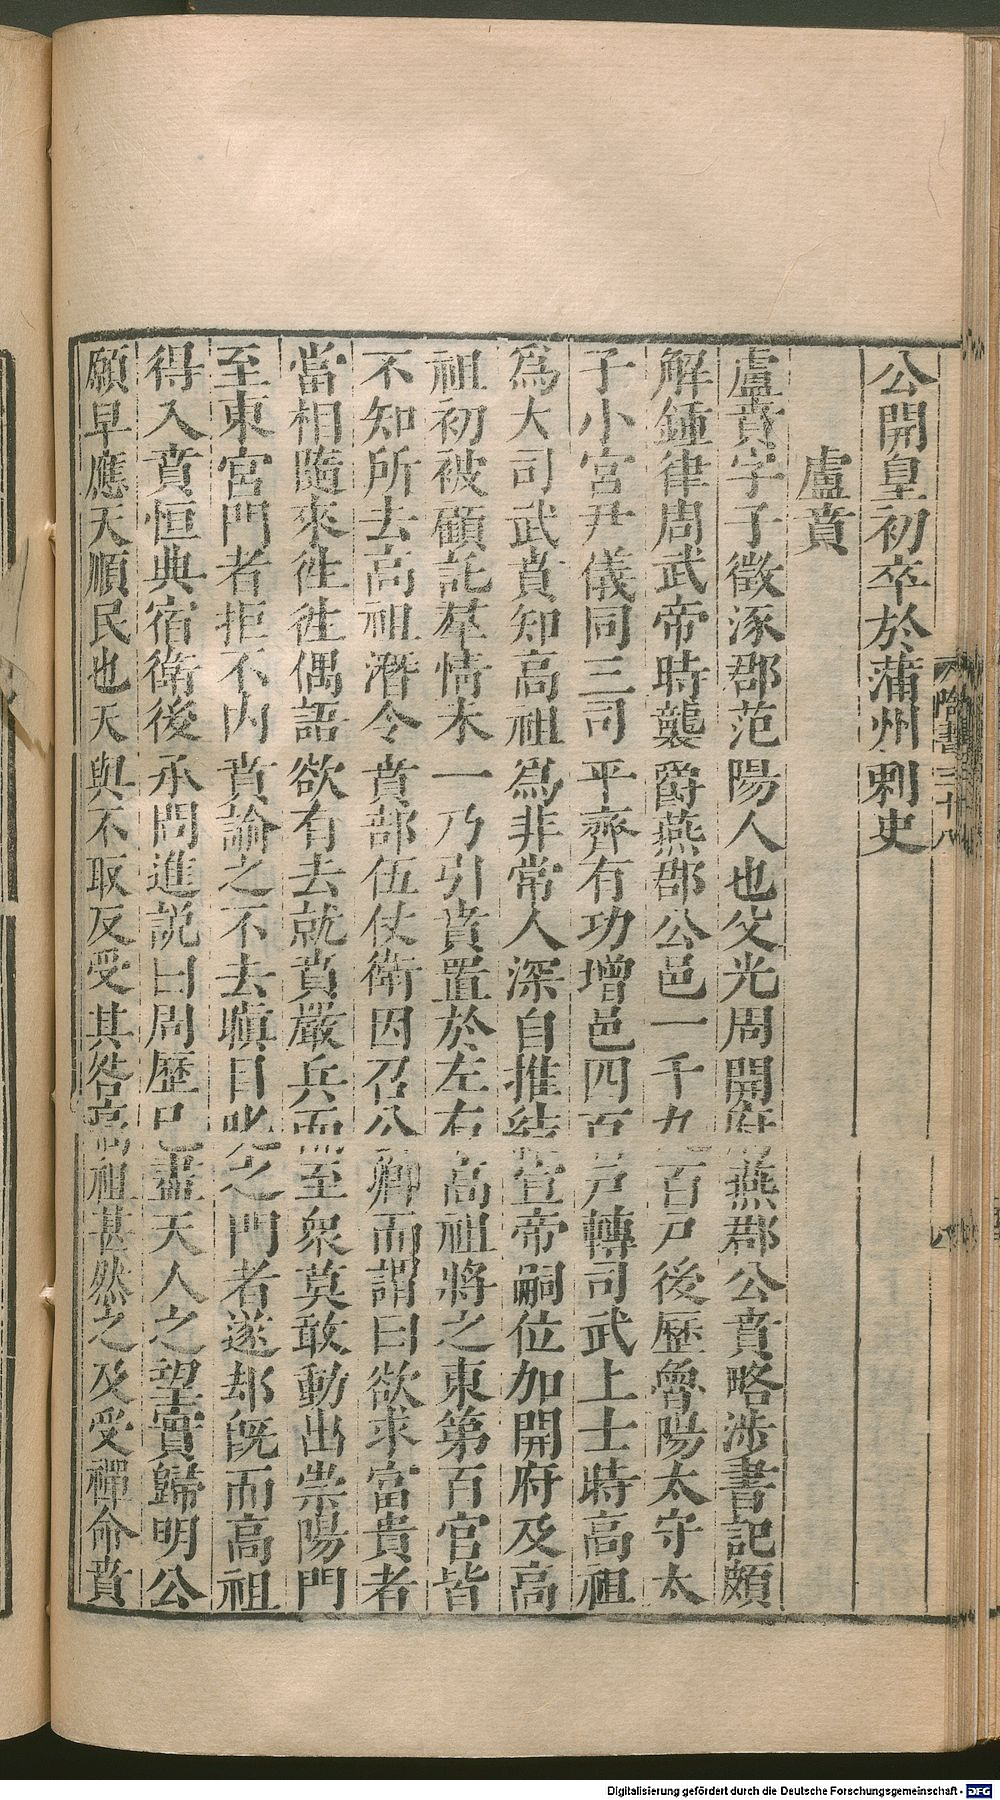 公開皇初卒於蒲州刺史
盧賁
盧賁字子徵涿郡范陽人也父光周開府燕郡公賁略涉書記頗
解鍾律周武帝時襲爵燕郡公邑一千九百戸後歷魯陽太守太
子小宮尹儀同三司平齊有功增邑四百戸轉司武上士時高祖
爲大司武賁知高祖爲非常人深自推結宣帝嗣位加開府及高
祖初被顧託羣情未一乃引賁置於左右高祖將之東第百官皆
不知所去高祖潛令賁部伍仗衛因召公卿而謂曰欲求富貴者
當相隨來往往偶語欲有去就賁嚴兵而至衆莫敢動出崇陽門
至東宮門者拒不内賁諭之不去瞋目叱之門者遂却既而高祖
得入賁恒典宿衛後承問進説曰周歷已盡天人之望實歸明公
願早應天順民也天與不取反受其咎高祖甚然之及受禪命賁
隋書三十八
Digitalisierung gefördert durch die Deutsche Forschungsgemeinschaft - DFG